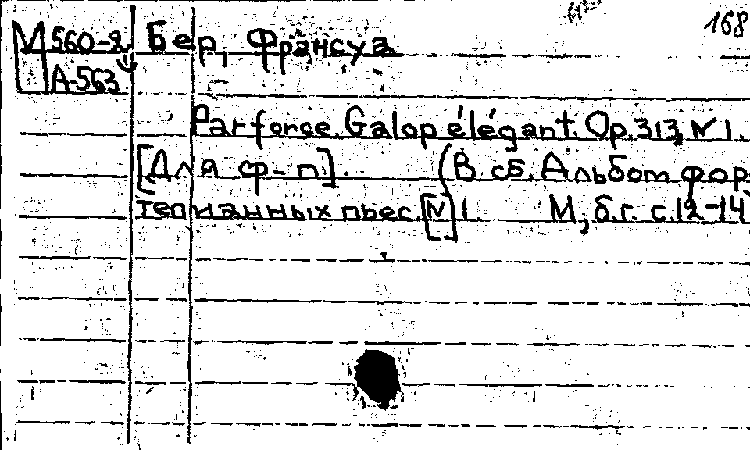 168
М 560-2 Бер, Франсуа
А-563
Parforce. Galop élégant. Op. 313, № 1.
[Для ф-п]. (В сб. Альбом фор
тепианных пьес. [№] 1. М, б.г. с. 12-14